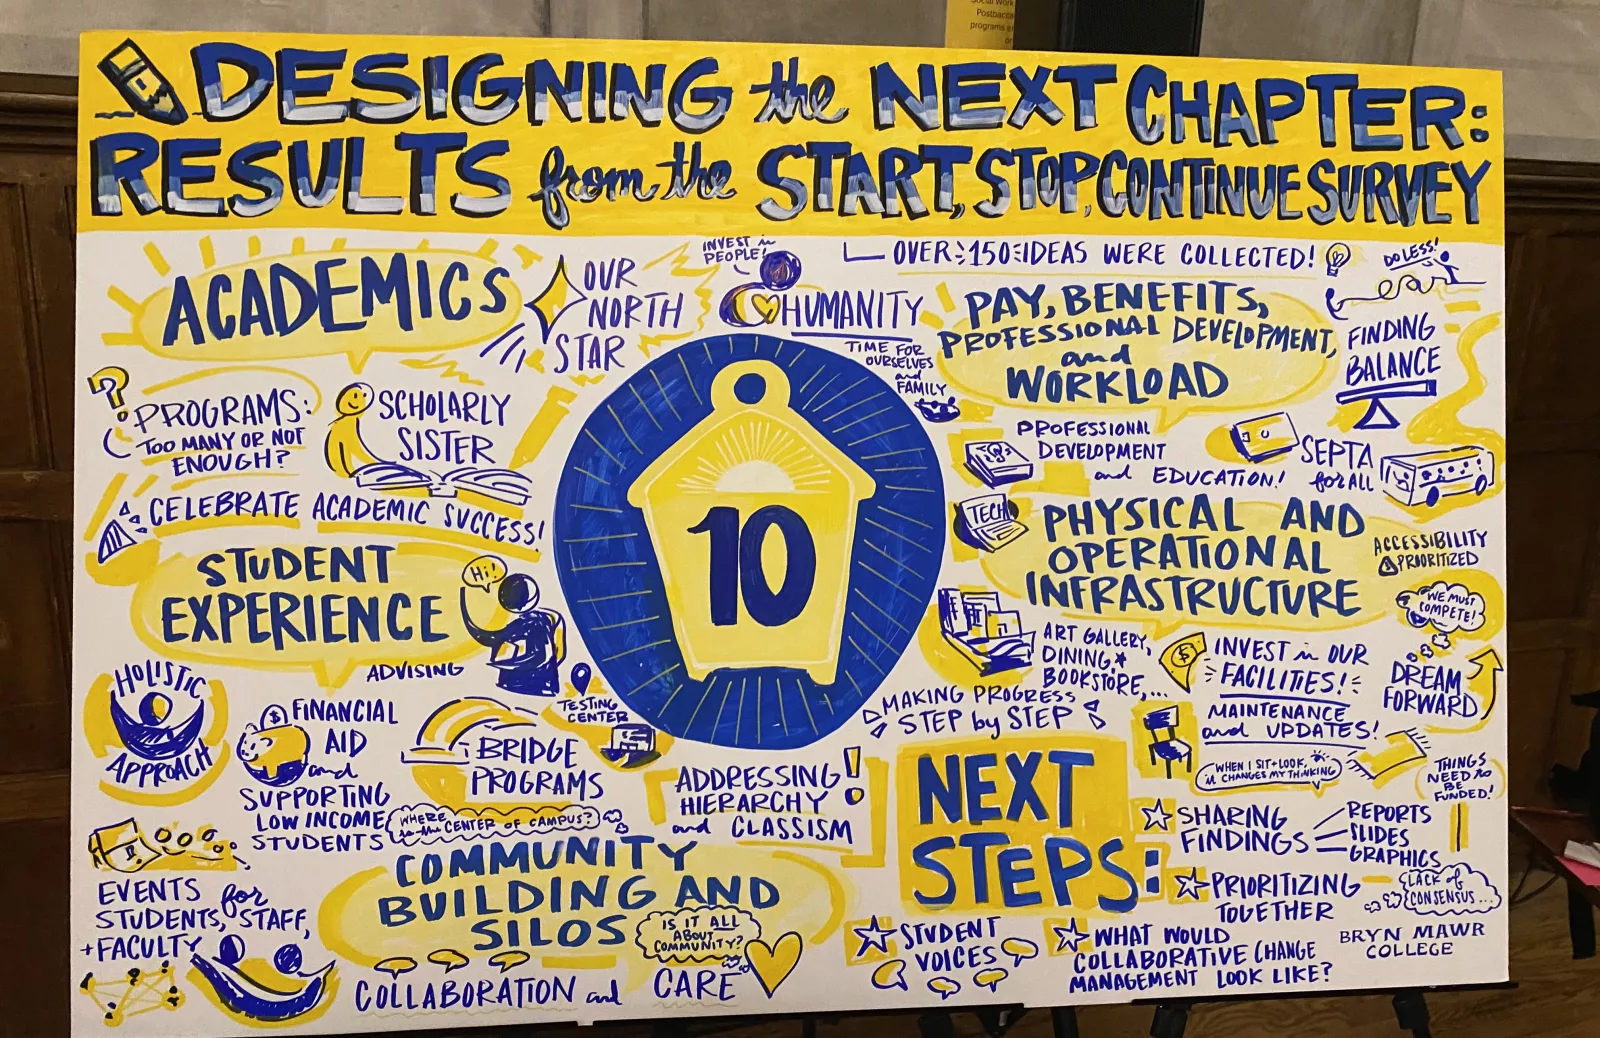 Social Work
Postbacca
programs e
DESIGNING the NEXT CHAPTER:
RESULTS from the START, STOP, CONTINUE SURVEY
OVER 150 IDEAS WERE COLLECTED!
ACADEMICS
OUR
NORTH
STAR
INVEST in
PEOPLE!
HUMANITY
TIME FOR
OURSELVES
and
FAMILY
PROGRAMS:
TOO MANY OR NOT
ENOUGH?
SCHOLARLY
SISTER
CELEBRATE ACADEMIC SUCCESS!
10
PAY, BENEFITS,
PROFESSIONAL DEVELOPMENT,
and
WORKLOAD
DO LESS!
FINDING
BALANCE
PROFESSIONAL
DEVELOPMENT
and EDUCATION!
SEPTA
for ALL
STUDENT
EXPERIENCE
Hi!
ADVISING
HOLISTIC
APPROACH
$
FINANCIAL
AID
and
SUPPORTING
LOW INCOME
STUDENTS
BRIDGE
PROGRAMS
TESTING
CENTER
TECH
PHYSICAL AND
OPERATIONAL
INFRASTRUCTURE
ACCESSIBILITY
PRIORITIZED
WE MUST
COMPETE!
DREAM
FORWARD
ART GALLERY,
DINING,
BOOKSTORE,...
MAKING PROGRESS
STEP by STEP
$
INVEST in OUR
FACILITIES!
MAINTENANCE
and UPDATES!
WHEN I SIT + LOOK,
it CHANGES MY THINKING
THINGS
NEED to
BE
FUNDED!
WHERE
is the CENTER OF CAMPUS?
ADDRESSING
HIERARCHY
and CLASSISM
COMMUNITY
BUILDING AND
SILOS
IS IT ALL
ABOUT
COMMUNITY?
EVENTS for
STUDENTS, STAFF,
+ FACULTY
COLLABORATION and CARE
NEXT
STEPS:
SHARING
FINDINGS
REPORTS
SLIDES
GRAPHICS
PRIORITIZING
TOGETHER
LACK of
CONSENSUS...
STUDENT
VOICES
WHAT WOULD
COLLABORATIVE CHANGE
MANAGEMENT LOOK LIKE?
BRYN MAWR
COLLEGE